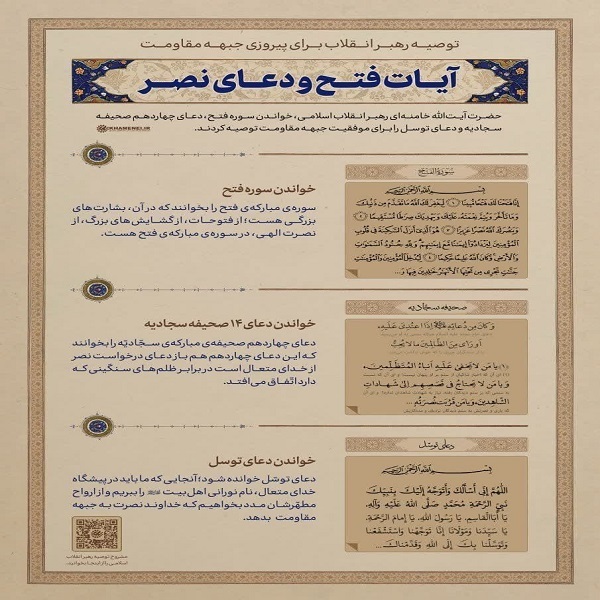 توصیه رهبر انقلاب برای پیروزی جبهه مقاومت
آیات فتح و دعای نصر
حضرت آیت‌الله خامنه‌ای رهبر انقلاب اسلامی، خواندن سوره فتح، دعای چهاردهم صحیفه
سجادیه و دعای توسل را برای موفقیت جبهه مقاومت توصیه کردند.
KHAMENEI.IR
سورة الفتح
خواندن سوره فتح
سوره‌ی مبارکه‌ی فتح را بخوانند که در آن، بشارت‌های
بزرگی هست؛ از فتوحات، از گشایش‌های بزرگ، از
نصرت الهی، در سوره‌ی مبارکه‌ی فتح هست.
بِسْمِ اللهِ الرَّحْمٰنِ الرَّحِيمِ
إِنَّا فَتَحْنَا لَكَ فَتْحًا مُبِينًا ﴿١﴾ لِيَغْفِرَ لَكَ اللَّهُ مَا تَقَدَّمَ مِنْ ذَنْبِكَ
وَمَا تَأَخَّرَ وَيُتِمَّ نِعْمَتَهُ عَلَيْكَ وَيَهْدِيَكَ صِرَاطًا مُسْتَقِيمًا ﴿٢﴾
وَيَنْصُرَكَ اللَّهُ نَصْرًا عَزِيزًا ﴿٣﴾ هُوَ الَّذِي أَنْزَلَ السَّكِينَةَ فِي قُلُوبِ
الْمُؤْمِنِينَ لِيَزْدَادُوا إِيمَانًا مَعَ إِيمَانِهِمْ وَلِلَّهِ جُنُودُ السَّمَاوَاتِ
وَالْأَرْضِ وَكَانَ اللَّهُ عَلِيمًا حَكِيمًا ﴿٤﴾ لِيُدْخِلَ الْمُؤْمِنِينَ وَالْمُؤْمِنَاتِ
جَنَّاتٍ تَجْرِي مِنْ تَحْتِهَا الْأَنْهَارُ خَالِدِينَ فِيهَا وَ...
صحیفه سجادیه
خواندن دعای ۱۴ صحیفه سجادیه
دعای چهاردهم صحیفه‌ی مبارکه‌ی سجّادیّه را بخوانند
که این دعای چهاردهم هم باز دعای درخواست نصر
از خدای متعال است در برابر ظلم‌های سنگینی که
دارد اتّفاق می‌افتد.
وَ كَانَ مِنْ دُعَائِهِ إِذَا اعْتُدِيَ عَلَيْهِ،
أَوْ رَأَى مِنَ الظَّالِمِينَ مَا لَا يُحِبُّ
(١) يَا مَنْ لَا يَخْفَى عَلَيْهِ أَنْبَاءُ الْمُتَظَلِّمِينَ،
وَ يَا مَنْ لَا يَحْتَاجُ فِي قَصَصِهِمْ إِلَى شَهَادَاتِ
الشَّاهِدِينَ، وَ يَا مَنْ قَرُبَتْ نُصْرَتُهُ ...
دعای توسل
خواندن دعای توسل
دعای توسّل خوانده شود؛ آنجایی که ما باید در پیشگاه
خدای متعال، نام نورانی اهل بیت را ببریم و از ارواح
مطهّرشان مدد بخواهیم که خداوند نصرت به جبهه
مقاومت بدهد.
بِسْمِ اللهِ الرَّحْمٰنِ الرَّحِيمِ
اللّٰهُمَّ إِنِّي أَسْأَلُكَ وَأَتَوَجَّهُ إِلَيْكَ بِنَبِيِّكَ
نَبِيِّ الرَّحْمَةِ مُحَمَّدٍ صَلَّى اللّٰهُ عَلَيْهِ وَآلِهِ.
يَا أَبَا الْقَاسِمِ، يَا رَسُولَ اللّٰهِ، يَا إِمَامَ الرَّحْمَةِ،
يَا سَيِّدَنَا وَمَوْلَانَا إِنَّا تَوَجَّهْنَا وَاسْتَشْفَعْنَا
وَتَوَسَّلْنَا بِكَ إِلَى اللّٰهِ وَقَدَّمْنَاكَ ...
مشروح توصیه رهبر انقلاب
اسلامی را از اینجا بخوانید.